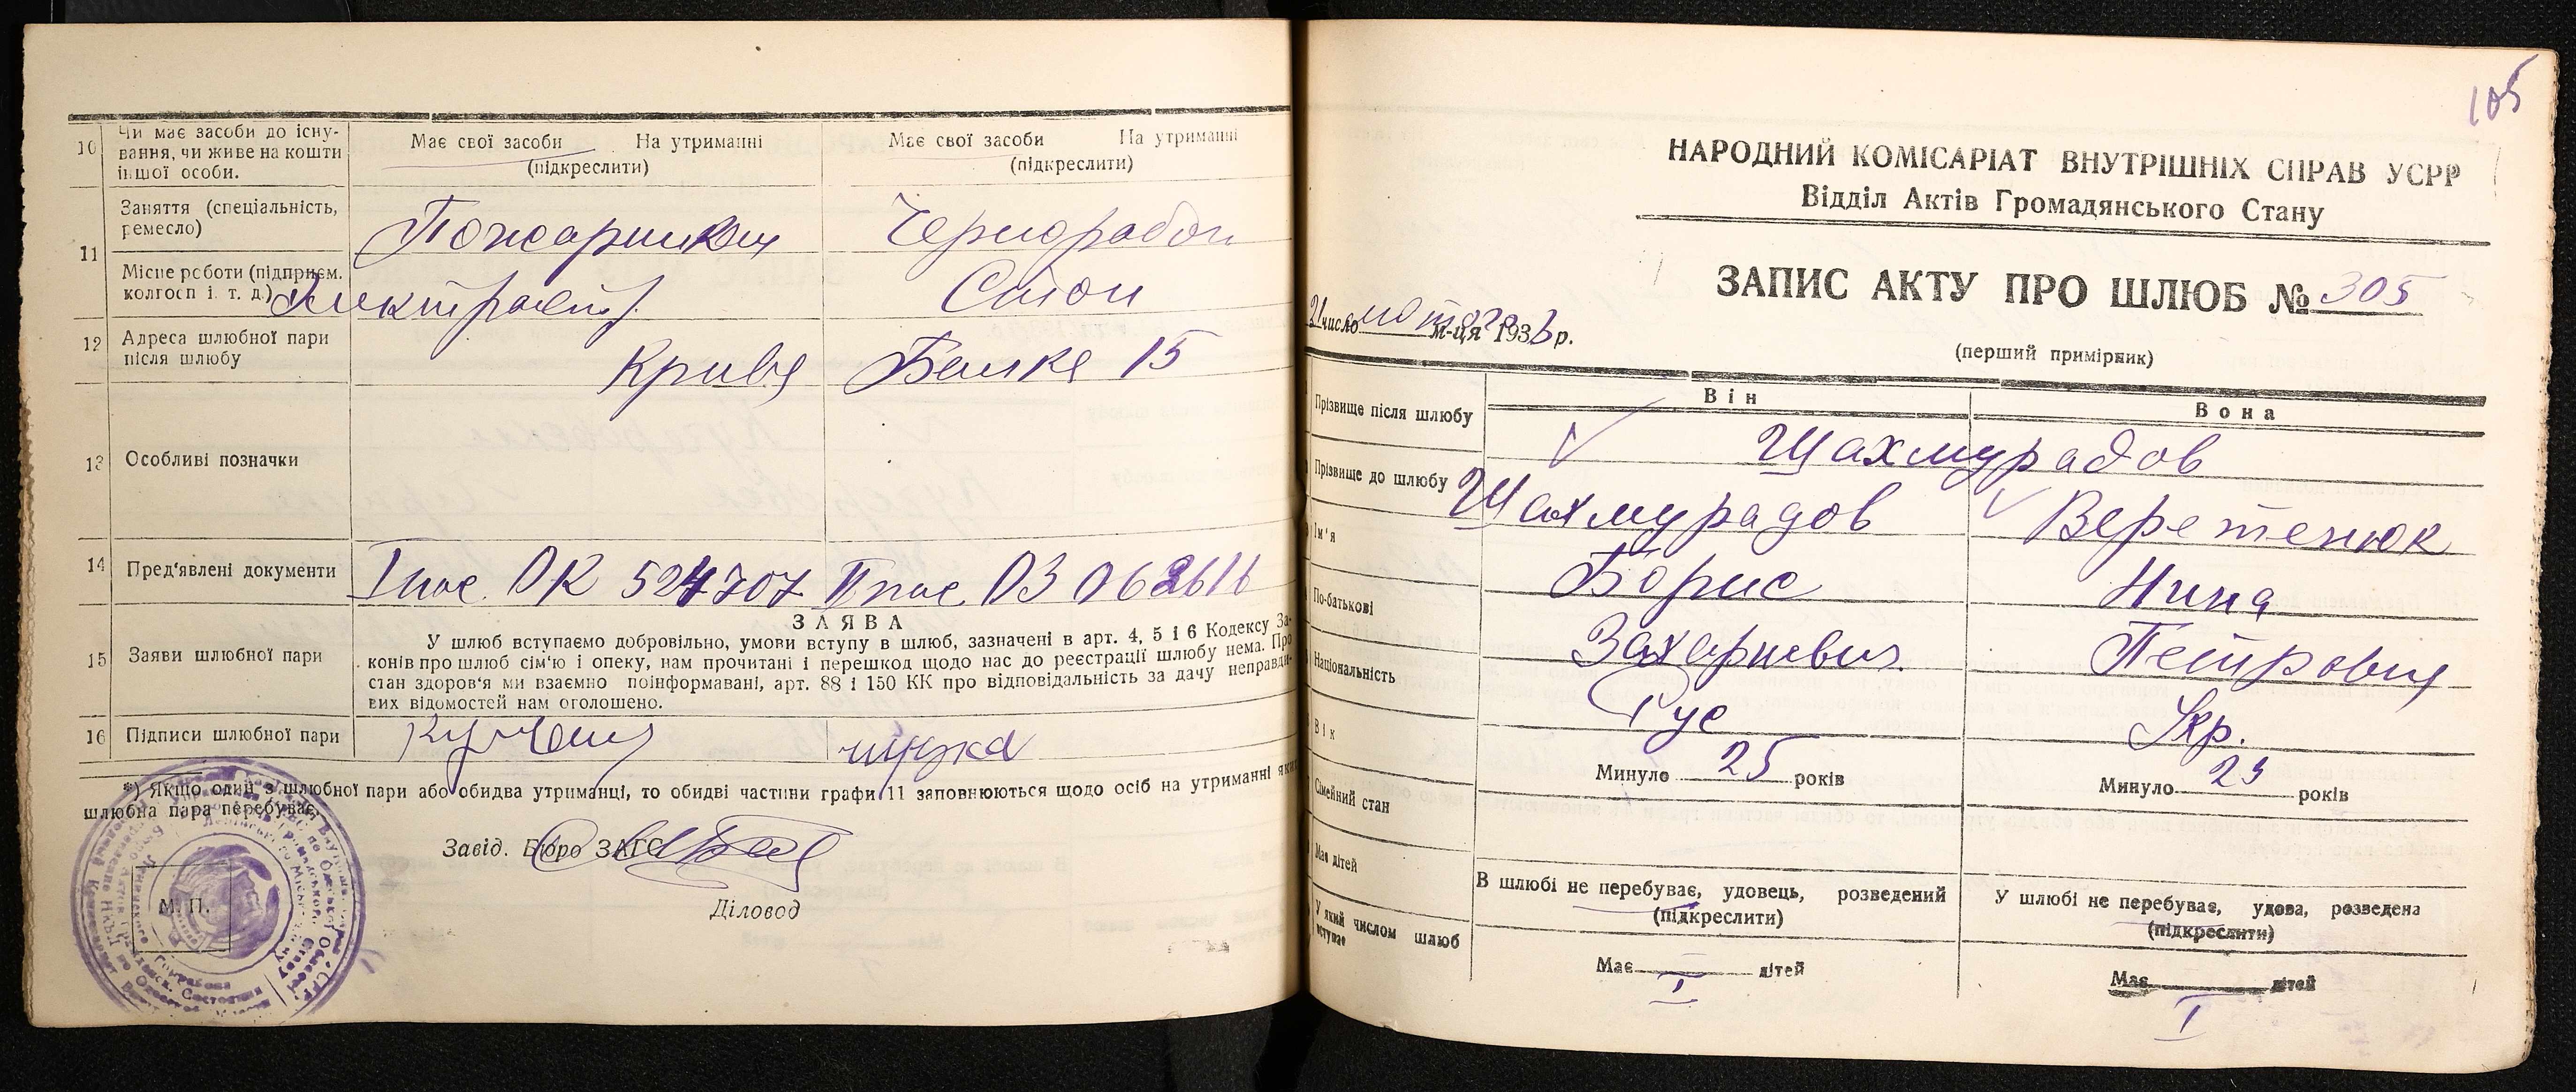 10 Чи має засоби до існу-
вання, чи живе на кошти
іншої особи.
Має свої засоби На утриманні
(підкреслити)
Має свої засоби На утриманні
(підкреслити)
11 Заняття (спеціальність,
ремесло)
Чернороб
Місце роботи (підприєм.
колгосп і. т. д.)
12 Адреса шлюбної пари
після шлюбу
Крива Балка 15
13 Особливі позначки
14 Пред'явлені документи
І пас. ОК 524707 ІІ пас. ОЗ
15 Заяви шлюбної пари
ЗАЯВА
У шлюб вступаємо добровільно, умови вступу в шлюб, зазначені в арт. 4, 5 і 6 Кодексу За-
конів про шлюб сім'ю і опеку, нам прочитані і перешкод щодо нас до реєстрації шлюбу нема. Про
стан здоров'я ми взаємно поінформавані, арт. 88 і 150 КК про відповідальність за дачу неправди-
вих відомостей нам оголошено.
16 Підписи шлюбної пари
*) Якщо один з шлюбної пари або обидва утриманці, то обидві частини графи 11 заповнюються щодо осіб на утриманні яких
шлюбна пара перебуває.
Завід. Бюро ЗАГС
Діловод
М. П.
105
НАРОДНИЙ КОМІСАРІАТ ВНУТРІШНІХ СПРАВ УСРР
Відділ Актів Громадянського Стану
ЗАПИС АКТУ ПРО ШЛЮБ № 305
21 число лютого м-ця 193 р.
(перший примірник)
Він
Вона
Прізвище після шлюбу
Шахмурадов
Прізвище до шлюбу
Шахмурадов
Веретенюк
Ім'я
Борис
Нина
По-батькові
Захариевич
Петровна
Національність
Рус
Укр.
Вік
Минуло 25 років
Минуло 23 років
Сімейний стан
В шлюбі не перебуває, удовець, розведений
(підкреслити)
У шлюбі не перебуває, удова, розведена
(підкреслити)
Має дітей
Має I дітей
Має I дітей
У який числом шлюб
вступає